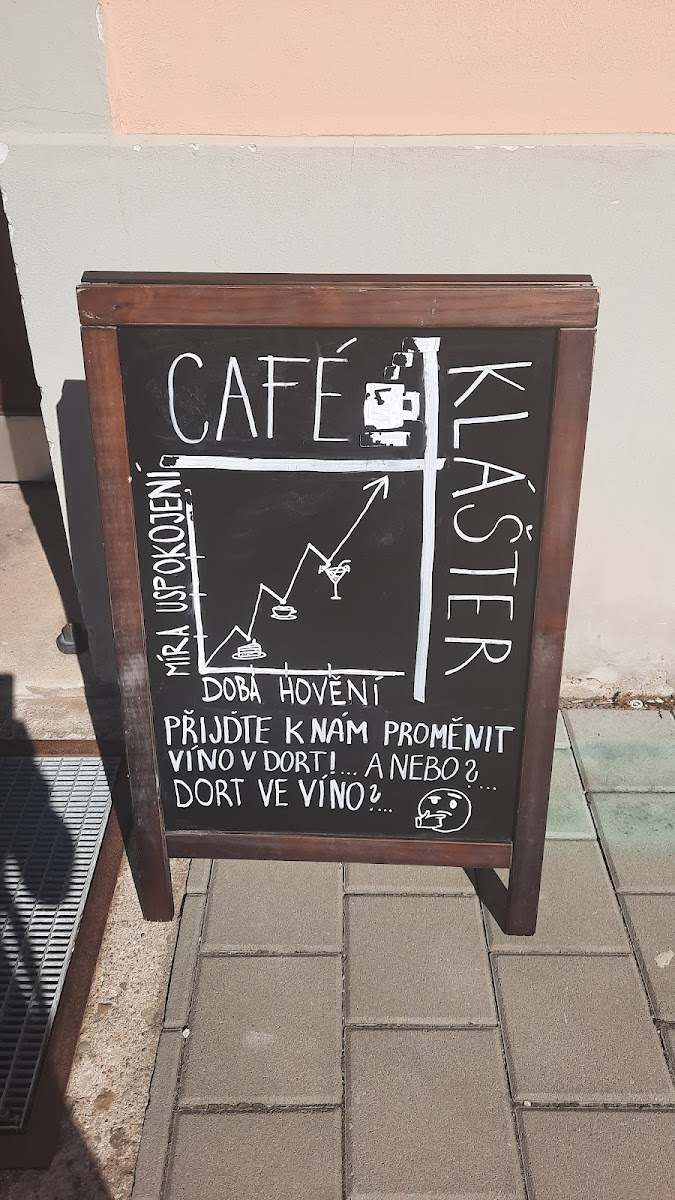 CAFÉ
KLÁŠTER
MÍRA USPOKOJENÍ
DOBA HOVĚNÍ
PŘIJĎTE K NÁM PROMĚNIT
VÍNO V DORT!... A NEBO?...
DORT VE VÍNO?...